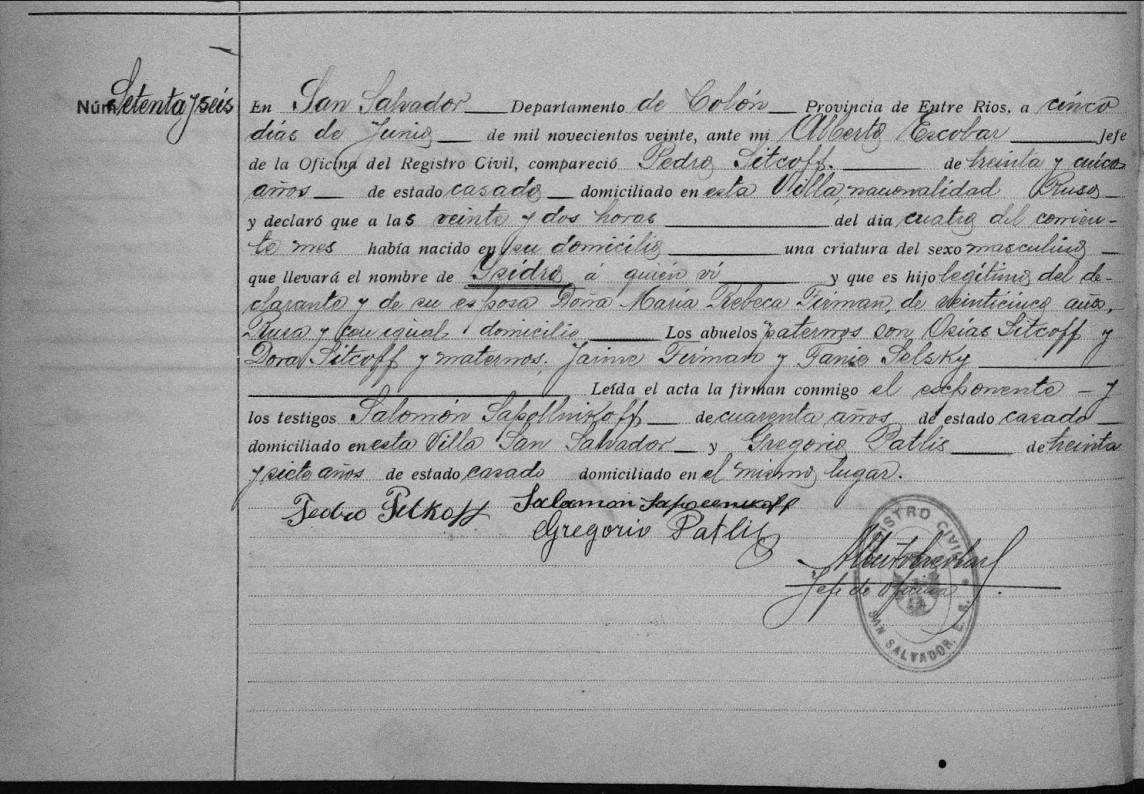 Núm. Setenta y seis
En San Salvador Departamento de Colón Provincia de Entre Rios, a cinco
días de Junio de mil novecientos veinte, ante mi Alberto Escobar Jefe
de la Oficina del Registro Civil, compareció Pedro Sitcoff. de treinta y cinco
años de estado casado domiciliado en esta Villa, nacionalidad Ruso
y declaró que a las veinte y dos horas del dia cuatro del corrien-
te mes había nacido en su domicilio una criatura del sexo masculino
que llevará el nombre de Isidro á quien vi y que es hijo legítimo del de-
clarante y de su esposa Doña María Rebeca Firman, de veinticinco años,
Rusa y con igual domicilio Los abuelos paternos son Osías Sitcoff y
Dora Sitcoff y maternos, Jaime Firman y Fanie Selsky
Leída el acta la firman conmigo el exponente – y
los testigos Salomón Sapollnikoff de cuarenta años de estado casado
domiciliado en esta Villa San Salvador y Gregorio Patlis de treinta
y siete años de estado casado domiciliado en el mismo lugar.
Pedro Sitkoff Salamon
Gregorio Patlis
Alberto Escobar
Jefe de Oficina
REGISTRO CIVIL
SAN SALVADOR, E. R.